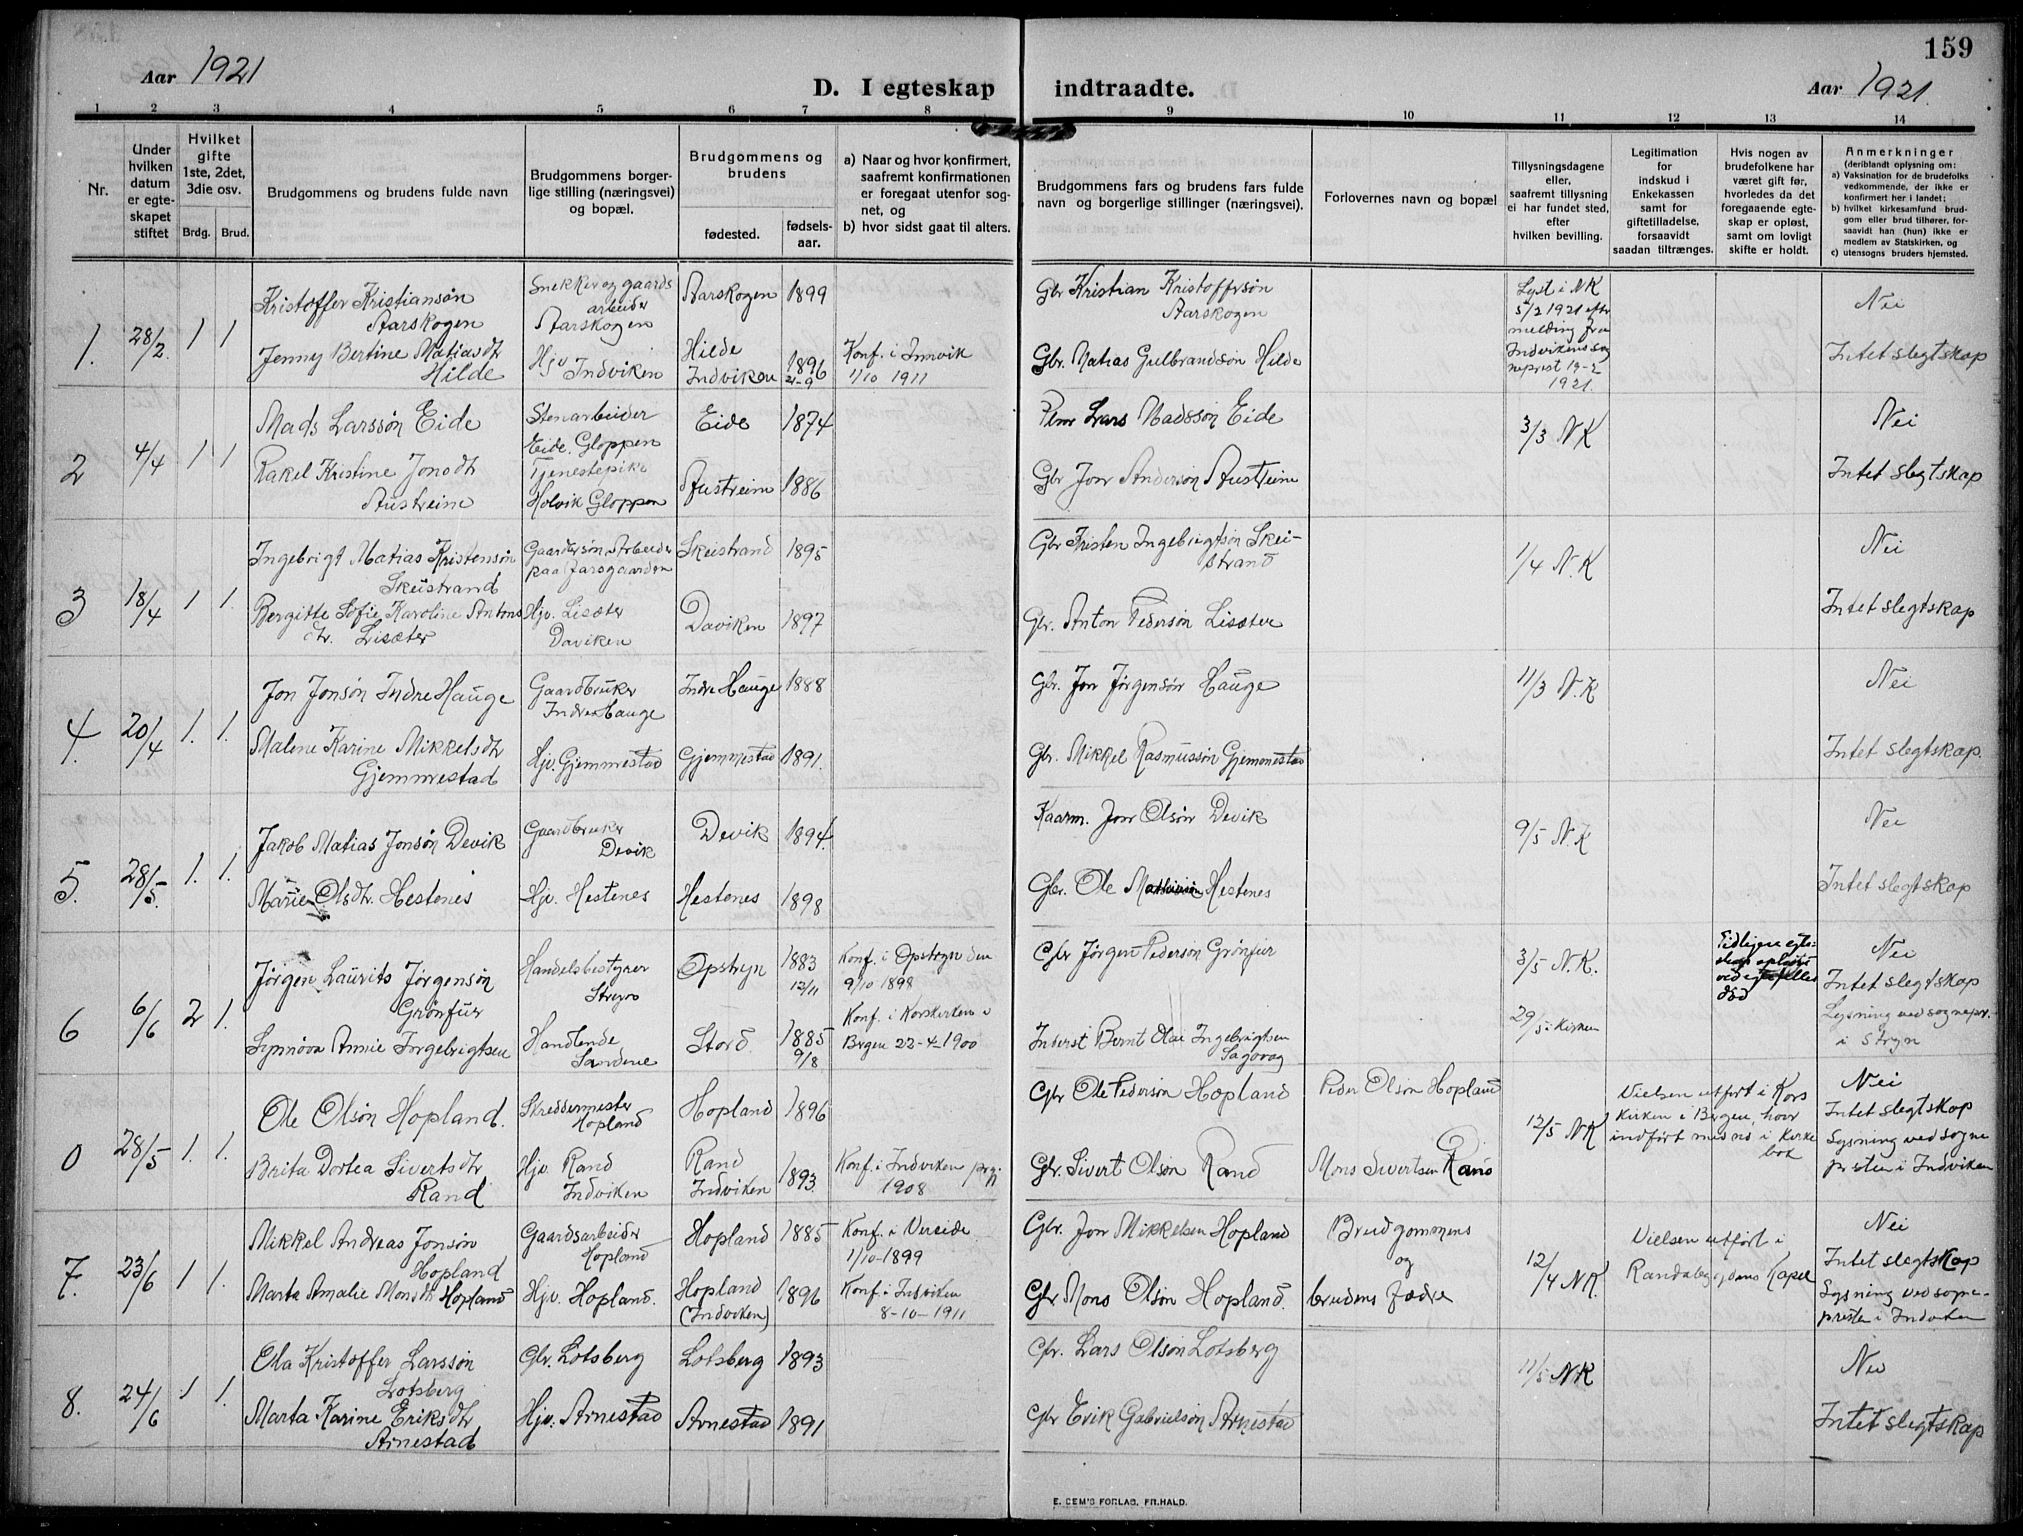 159
Aar 1921
D. I egteskap indtraadte.
Aar 1921.
1 2 3 4 5 6 7 8 9 10 11 12 13 14
Nr.
Under
hvilken
datum
er egte-
skapet
stiftet
Hvilket
gifte
1ste, 2det,
3die osv.
Brdg. Brud.
Brudgommens og brudens fulde navn
Brudgommens borger-
lige stilling (næringsvei)
og bopæl.
Brudgommens og
brudens
fødested.
fødsels-
aar.
a) Naar og hvor konfirmert,
saafremt konfirmationen
er foregaat utenfor sog-
net, og
b) hvor sidst gaat til alters.
Brudgommens fars og brudens fars fulde
navn og borgerlige stillinger (næringsvei).
Forlovernes navn og bopæl
Tillysningsdagene
eller,
saafremt tillysning
ei har fundet sted,
efter
hvilken bevilling.
Legitimation
for
indskud i
Enkekassen
samt for
giftetilladelse,
forsaavidt
saadan tiltrænges.
Hvis nogen av
brudefolkene har
været gift før,
hvorledes da det
foregaaende egte-
skap er opløst,
samt om lovligt
skifte er holdt.
Anmerkninger
(deriblandt oplysning om:
a) Vaksination for de brudefolks
vedkommende, der ikke er
konfirmert her i landet;
b) hvilket kirkesamfund brud-
gom eller brud tilhører, for-
saavidt han (hun) ikke er
medlem av Statskirken, og
c) utensogns bruders hjemsted.
1. 28/2 1 1
Kristoffer Kristiansøn
Aarskogen
Jenny Bertine Matiasdtr
Hilde
Snekker og gaards
arbeider
Aarskogen
Hjv Indviken
Aarskogen 1899
Hilde
Indviken 1896
21-9
Konf. i Innvik
1/10 1911
Gbr Kristian Kristoffersøn
Aarskogen
Gbr. Matias Gulbrandsøn Hilde
Lyst i NK
5/2 1921 efter
melding fra
Indvikens sog
neprest 19-2
1921.
Nei
Intet slegtskap
2 4/4 1 1
Mads Larssøn Eide
Rakel Kristine Jonsdtr
Austreim
Stenarbeider
Eide. Gloppen
Tjenestepike
Holvik Gloppen
Eide 1874
Austreim 1886
Plmr Lars Madssøn Eide
Gbr Jon Andersøn Austreim
3/3 N K
Nei
Intet slegtskap
3 18/4 1 1.
Ingebrigt Matias Kristensøn
Skeistrand
Bergitte Sofie Karoline Antons
dtr. Lisæter
Gaardersøn Arbeider
paa farsgaarden
Hjv. Lisæter
Daviken
Skeistrand 1895
Daviken 1897
Gbr Kristen Ingebrigtsøn Skei-
strand
Gbr. Anton Pedersøn Lisæter
1/4 N.K
Nei
Intet slegtskap
4. 20/4 1. 1.
Jon Jonsøn Indre Hauge
Malene Karine Mikkelsdtr
Gjemmestad
Gaardbruker
Indre Hauge
Hjv. Gjemmestad
Indre Hauge 1888
Gjemmestad 1891.
Gbr. Jon Jørgensøn Hauge
Gbr. Mikkel Rasmussøn Gjemmestad
11/3 N.K
Nei
Intet slegtskap.
5. 28/5. 1. 1.
Jakob Matias Jonsøn Devik
Marie Olsdtr. Hestenes
Gaardbruker
Devik
Hjv. Hestenes
Devik 1894.
Hestenes 1898
Kaarm. Jon Olsøn Devik
Gbr. Ole Hestenes
9/5 N.K
Nei
Intet slegtskap
6 6/6 2 1.
Jørgen Laurits Jørgensøn
Grønfur
Synnøva Annie Ingebrigtsen
Handelsbestyrer
Stryn
Handlende
Sandene
Opstryn 1883
12/11
Stord. 1885
9/8
Konf. i Opstryn den
9/10 1898
Konf. i Korskirken i
Bergen 22-4-1900
Gbr Jørgen Pedersøn Grønfur
Inderst Bernt Olai Ingebrigtsen
Sagvag
3/5 N.K.
29/5 i Kirken
Tidligere egte-
skap opløst
ved egtefelles
død
Nei
Intet slegtskap
Lysning ved sognepr.
i Stryn
0 28/5 1. 1.
Ole Olsøn Hopland.
Brita Dortea Sivertsdtr
Rand
Skreddermester
Hopland
Hjv. Rand
Indviken
Hopland 1896
Rand
Indviken 1893
Konf. i Indviken
1908
Gbr Ole Pedersøn Hopland
Gbr. Sivert Olsøn Rand
Peder Olsøn Hopland
Mons Sivertsen Rand
12/5 NK
Vielsen utført i Kors
Kirken i Bergen, hvor
indført med no i Kirke
bok
Nei
Intet slegtskap
Lysning ved sogne
presten i Indviken
7. 23/6 1 1.
Mikkel Andreas Jonsøn
Hopland
Marta Amalie Monsdtr Hopland
Gaardsarbeider
Hopland
Hjv. Hopland.
Hopland 1885
Hopland
(Indviken) 1896
Konf. i Vereide
1/10-1899
Konf. i Indviken
8-10-1911
Gbr. Jon Mikkelsen Hopland
Gbr Mons Olsøn Hopland.
Brudgommens
og
brudens fædre
12/4 NK.
Vielsen utført i
Randabygdens Kapel
Nei
Intet slegtskap
Lysning ved sogne-
presten i Indviken
8. 24/6 1 1.
Ola Kristoffer Larssøn
Lotsberg
Marta Karine Eriksdtr
Arnestad
Gbr. Lotsberg
Hjv. Arnestad
Lotsberg 1893
Arnestad 1891
Gbr. Lars Olsøn Lotsberg
Gbr Erik Gabrielsøn Arnestad
11/5 NK
Nei
Intet slegtskap
E. SEM'S FORLAG, FR.HALD.